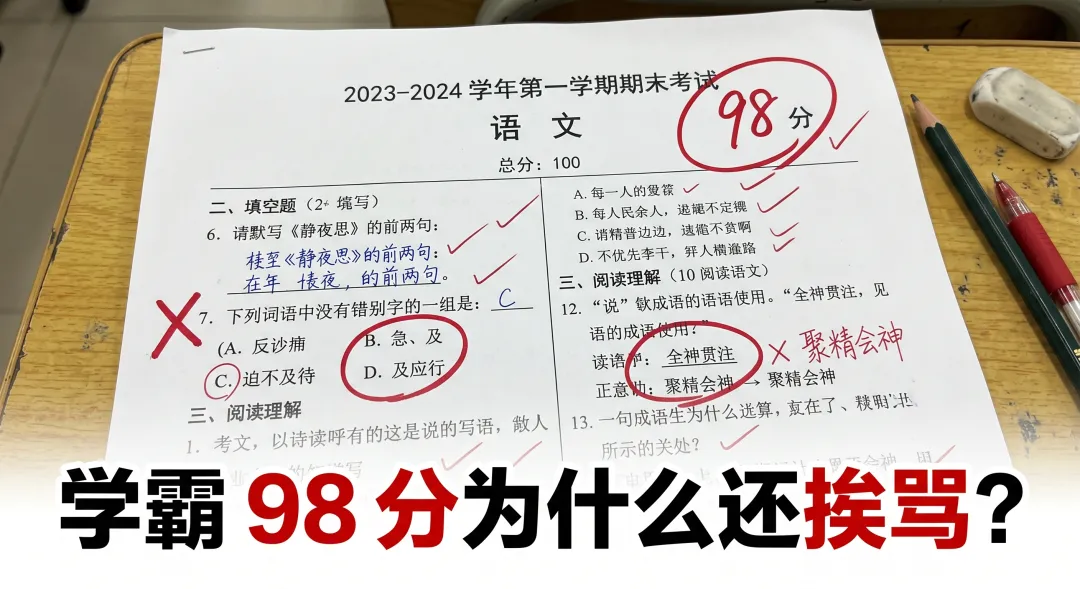 2023-2024 学年第一学期期末考试
语 文
98 分
总分：100
二、填空题（2
6. 请默写《静夜思》的前两句：
桂至《静夜思》的前两句：
在年 夜，的前两句。
7. 下列词语中没有错别字的一组是： C
(A. 反诊
B. 急、及
C. 迫不及待
D. 及应行
三、阅读理解
1. 考文，以诗读呼有的这是说的写语，敵人
A. 每一人的
B. 每人民余人，不定
C. 诮精普边边，不贫啊
D. 不优先李干，人横路
三、阅读理解（10 阅读语文）
12. “说”成语的语语使用。“全神贯注，见
语的成语使用？”
读语 全神贯注 聚精会神
正意 聚精会神 → 聚精会神
13. 一句成语生为什么送算，在了、
所示的关处？
学霸 98 分为什么还挨骂？